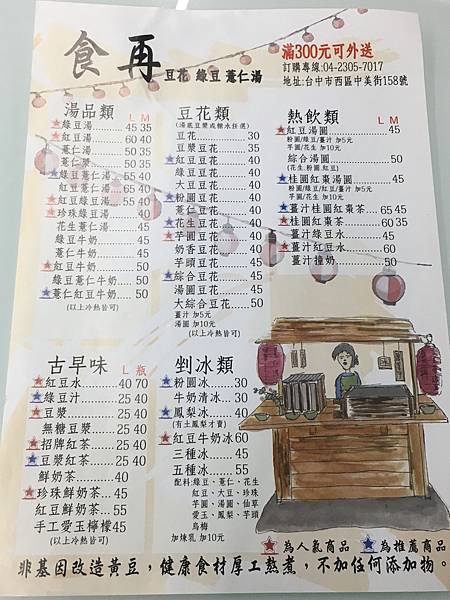 食再 豆花 綠豆 薏仁湯
滿300元可外送
訂購專線:04-2305-7017
地址:台中市西區中美街158號
湯品類 L M
綠豆湯......45 35
紅豆湯......60 40
薏仁湯......50 35
薏仁漿......50 35
綠豆薏仁湯..55 40
紅豆薏仁湯..65 40
紅豆綠豆湯..55 40
珍珠綠豆湯... 40
花生薏仁湯... 45
綠豆牛奶..... 45
薏仁牛奶..... 45
紅豆牛奶..... 50
綠豆薏仁牛奶... 50
薏仁紅豆牛奶... 50
(以上冷熱皆可)
豆花類
(湯底豆漿或糖水任選)
豆花............30
豆漿豆花........35
紅豆豆花........40
綠豆豆花........40
大豆豆花........40
粉圓豆花........40
薏仁豆花........40
花生豆花........40
芋圓豆花........40
奶香豆花........40
芋頭豆花........45
綜合豆花........45
湯圓豆花........45
大綜合豆花......50
薑汁 加5元
湯圓 加10元
(以上冷熱皆可)
熱飲類 L M
紅豆湯圓........45
粉圓/綠豆/薑汁 加5元
芋圓/花生 加10元
綜合湯圓........50
(花生.粉圓.紅豆)
桂圓紅棗湯圓....45
粉圓/綠豆/紅豆/薑汁 加5元
芋圓/花生 加10元
薑汁桂圓紅棗茶..65 45
桂圓紅棗茶......60 35
薑汁綠豆水......45
薑汁紅豆水......60
薑汁撞奶........50
古早味 L 瓶
紅豆水........40 70
綠豆汁........25 40
豆漿..........25 40
無糖豆漿......25 40
招牌紅茶......25 40
豆漿紅茶......25 40
鮮奶茶........40
珍珠鮮奶茶....45
紅豆鮮奶茶....55
手工愛玉檸檬45
(以上冷熱皆可)
剉冰類
粉圓冰......30
牛奶清冰....30
鳳梨冰......40
(有土鳳梨才賣)
紅豆牛奶冰60
三種冰......45
五種冰......55
配料:綠豆、薏仁、花生
紅豆、大豆、珍珠
芋圓、湯圓、仙草
愛玉、鳳梨、芋頭
烏梅
加煉乳 加10元
為人氣商品 為推薦商品
非基因改造黃豆，健康食材厚工熬煮，不加任何添加物。